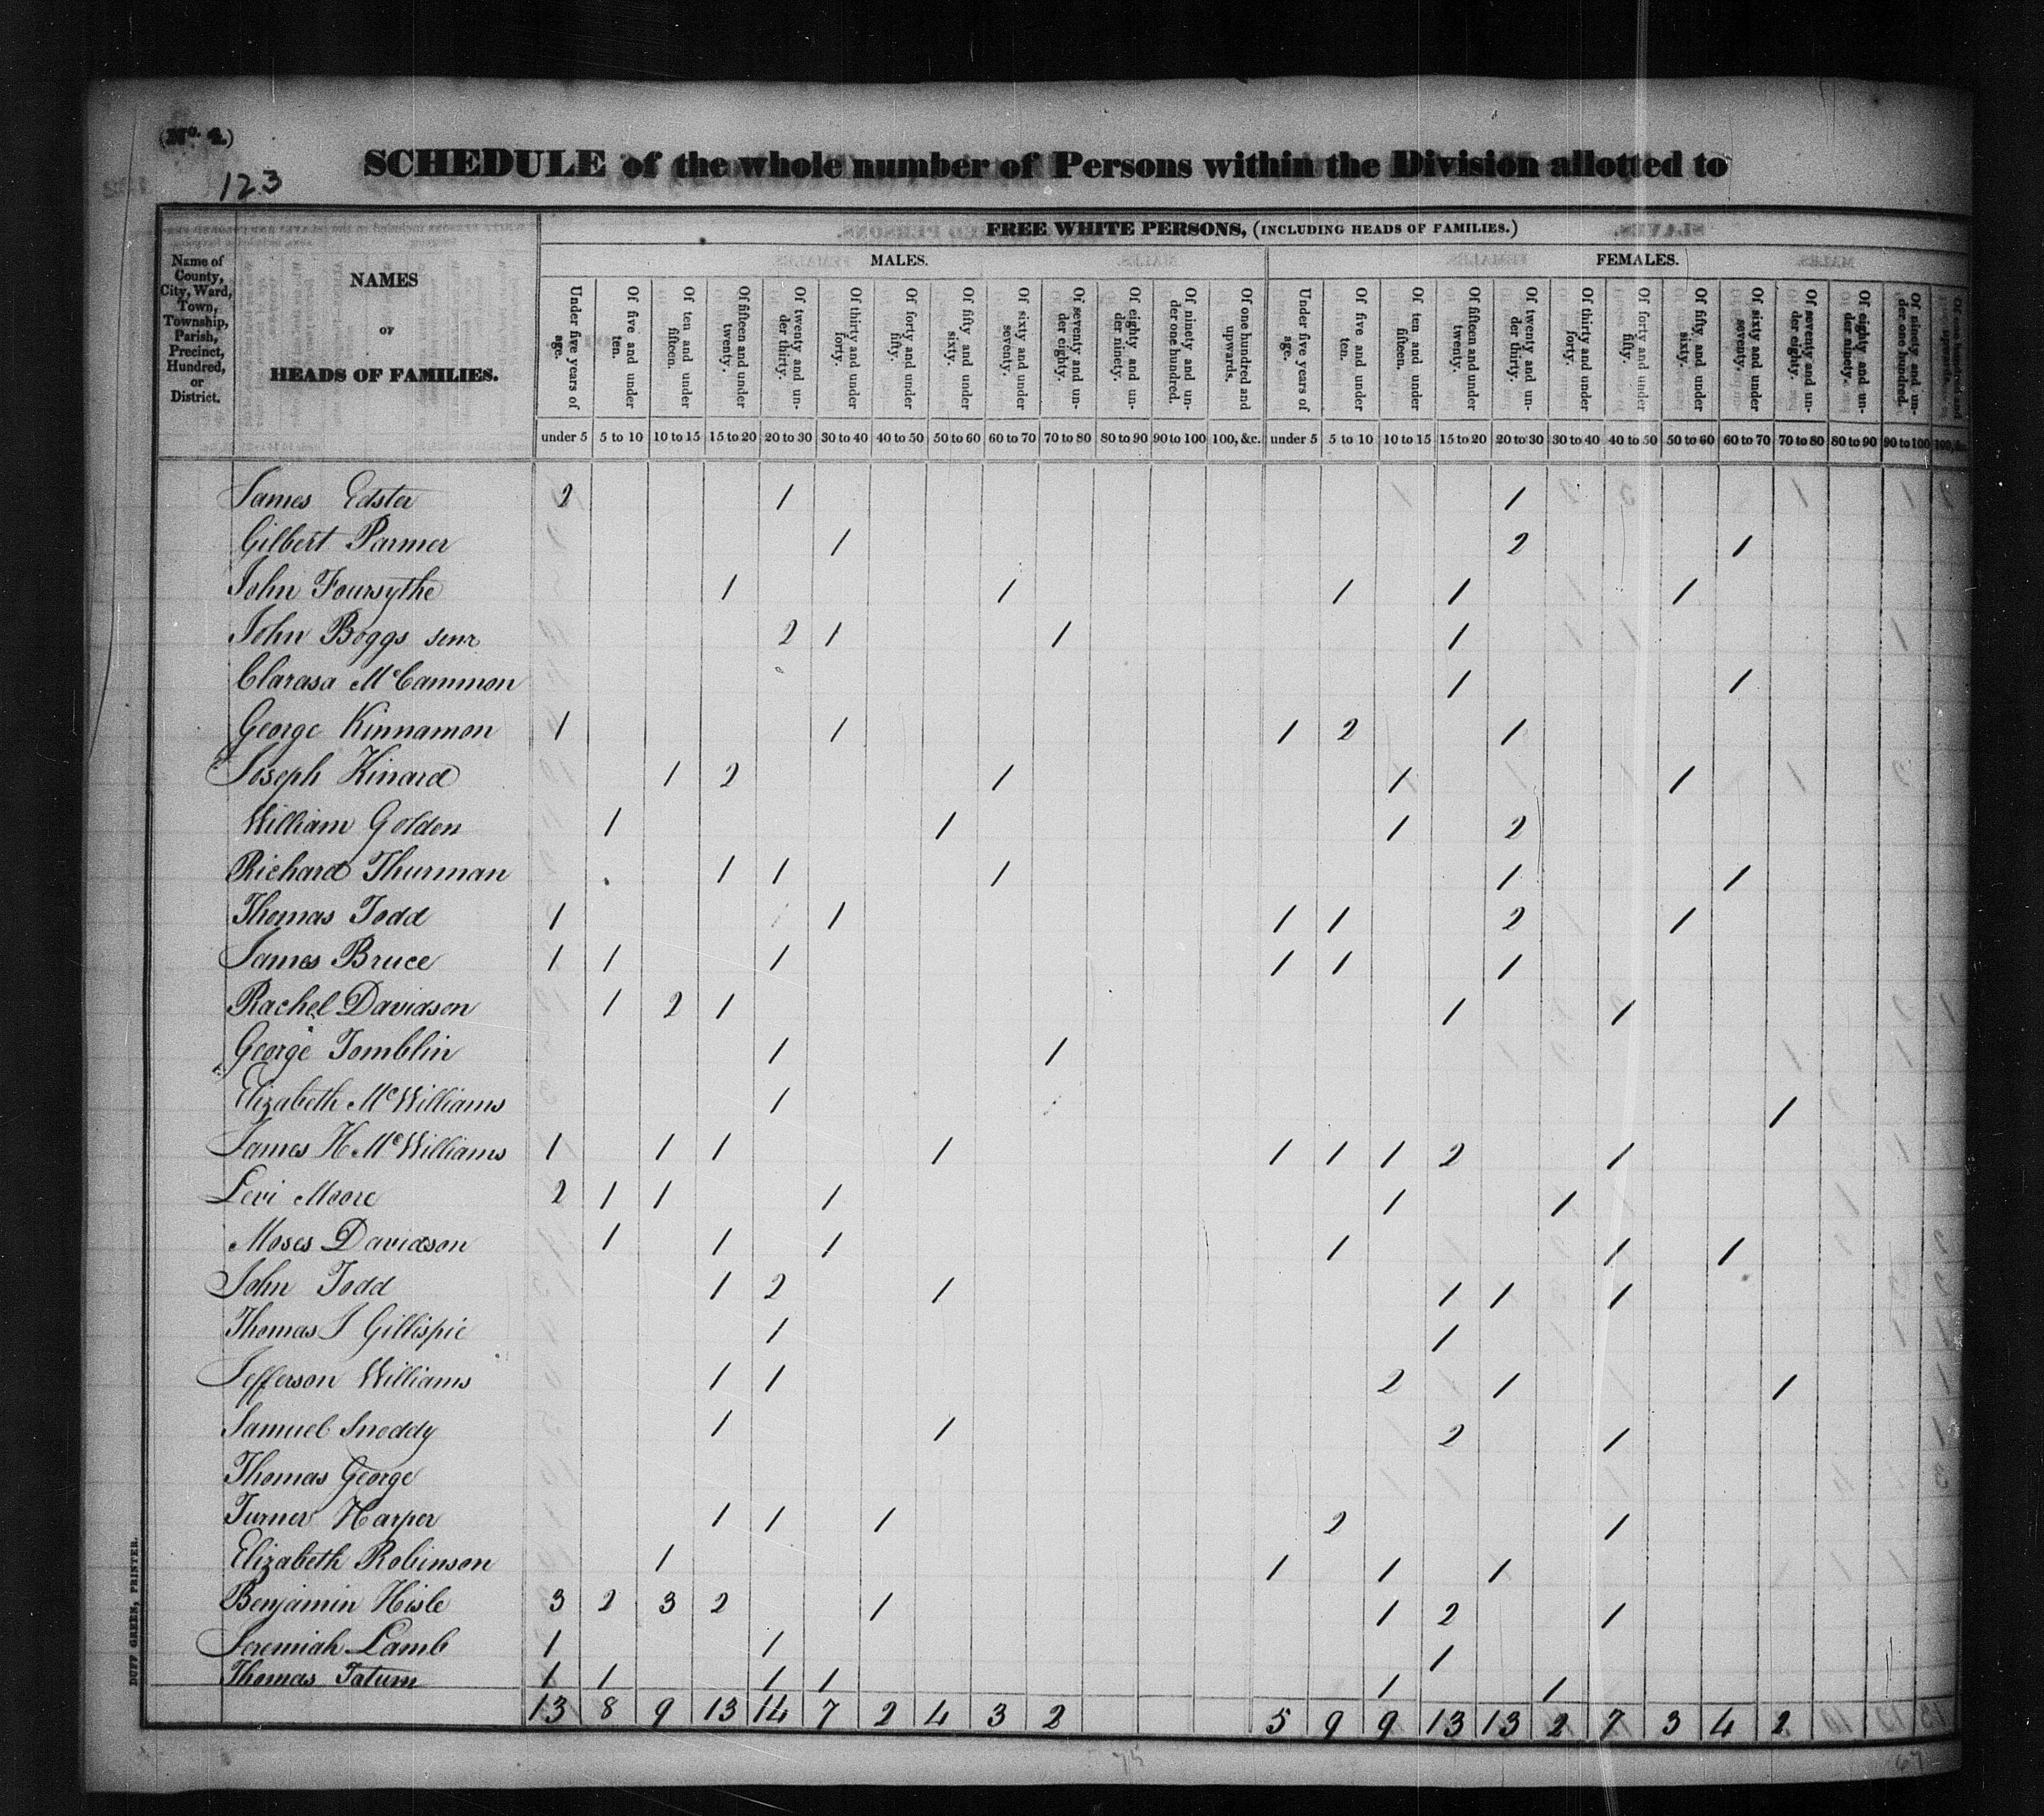 (No. 4.)
123
SCHEDULE of the whole number of Persons within the Division allotted to
FREE WHITE PERSONS, (INCLUDING HEADS OF FAMILIES.)
MALES. FEMALES.
Name of County, City, Ward, Town, Township, Parish, Precinct, Hundred, or District.
NAMES
OF
HEADS OF FAMILIES.
Under five years of age. Of five and under ten. Of ten and under fifteen. Of fifteen and under twenty. Of twenty and under thirty. Of thirty and under forty. Of forty and under fifty. Of fifty and under sixty. Of sixty and under seventy. Of seventy and under eighty. Of eighty and under ninety. Of ninety and under one hundred. Of one hundred and upwards. Under five years of age. Of five and under ten. Of ten and under fifteen. Of fifteen and under twenty. Of twenty and under thirty. Of thirty and under forty. Of forty and under fifty. Of fifty and under sixty. Of sixty and under seventy. Of seventy and under eighty. Of eighty and under ninety. Of ninety and under one hundred.
under 5 5 to 10 10 to 15 15 to 20 20 to 30 30 to 40 40 to 50 50 to 60 60 to 70 70 to 80 80 to 90 90 to 100 100, &c. under 5 5 to 10 10 to 15 15 to 20 20 to 30 30 to 40 40 to 50 50 to 60 60 to 70 70 to 80 80 to 90 90 to 100 100, &c.
James Edster 2 1 1
Gilbert Parmer 1 2 1
John Foursythe 1 1 1 1 1
John Boggs senr 2 1 1 1
Clarasa McCammon 1 1
George Kinnamon 1 1 1 2 1
Joseph Kinard 1 2 1 1 1
William Golden 1 1 1 2
Richard Thurman 1 1 1 1 1
Thomas Todd 1 1 1 1 2 1
James Bruce 1 1 1 1 1 1
Rachel Davidson 1 2 1 1 1
George Tomblin 1 1
Elizabeth McWilliams 1 1
James H McWilliams 1 1 1 1 1 1 1 2 1
Levi Moore 2 1 1 1 1 1
Moses Davidson 1 1 1 1 1 1
John Todd 1 2 1 1 1 1
Thomas J Gillispie 1 1
Jefferson Williams 1 1 2 1 1
Samuel Snoddy 1 1 2 1
Thomas George
Turner Harper 1 1 1 2 1
Elizabeth Robinson 1 1 1 1
Benjamin Hisle 3 2 3 2 1 1 2 1
Jeremiah Lamb 1 1 1
Thomas Tatum 1 1 1 1 1 1
13 8 9 13 14 7 2 4 3 2 5 9 9 13 13 2 7 3 4 2
75 67
DUFF GREEN, PRINTER.